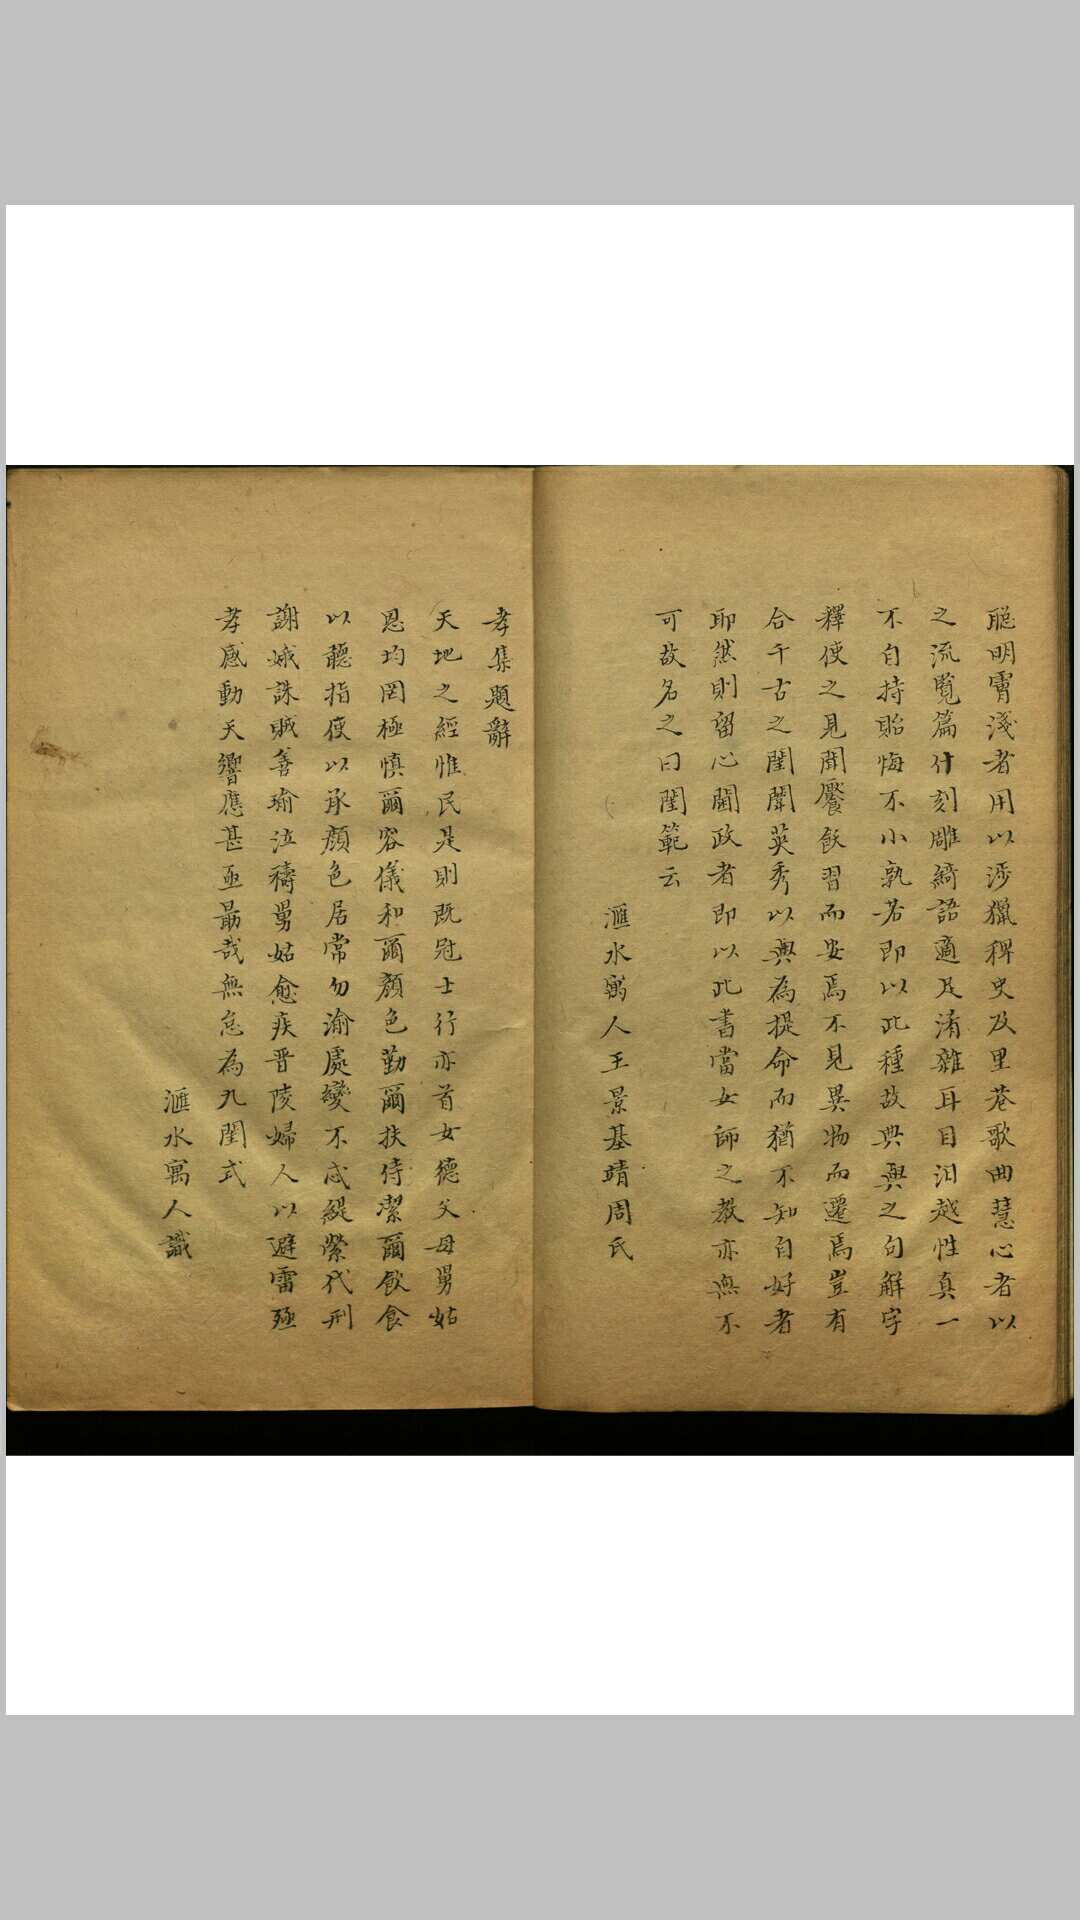 聪明膚淺者用以涉獵稗史及里巷歌曲慧心者以
之流覧篇什刻雕綺語適足淆雜耳目汩越性真一
不自持貽悔不小孰若即以此種故典與之句解字
釋使之見聞饜飫習而安焉不見異物而遷焉豈有
合千古之閨閫英秀以與為提命而猶不知自好者
耶然則留心閫政者即以此書當女師之教亦無不
可故名之曰閨範云
滙水寓人王景基靖周氏
孝集題辭
天地之經惟民是則既冠士行亦首女德父母舅姑
恩均罔極慎爾容儀和爾顏色勤爾扶侍潔爾飲食
以聽指使以承顏色居常勿渝處變不忒緹縈代刑
謝娥誅賊善瑜泣禱舅姑愈疾晋陵婦人以避雷殛
孝感動天響應甚亟勗哉無怠為九閨式
滙水寓人識